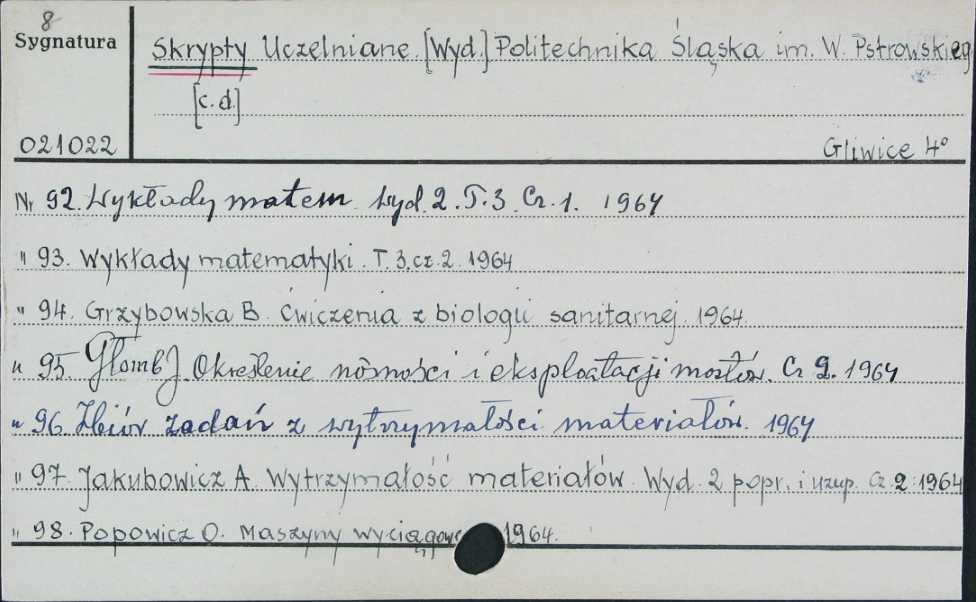 8
Sygnatura
Skrypty Uczelniane. [Wyd.] Politechnika Śląska im. W. Pstrowskieg
[c.d.]
021022
Gliwice 4°
Nr 92. Wykłady matem. Wyd. 2. T. 3. Cz. 1. 1964
" 93. Wykłady matematyki. T. 3. cz. 2. 1964
" 94. Grzybowska B. Ćwiczenia z biologii sanitarnej. 1964.
" 95. Głomb J. Określenie nośności i eksploatacji mostów. Cz 2. 1964
" 96. Zbiór zadań z wytrzymałości materiałów. 1964
" 97. Jakubowicz A. Wytrzymałość materiałów. Wyd. 2 popr. i uzup. Cz. 2. 1964
" 98. Popowicz O. Maszyny wyciągowe 1964.